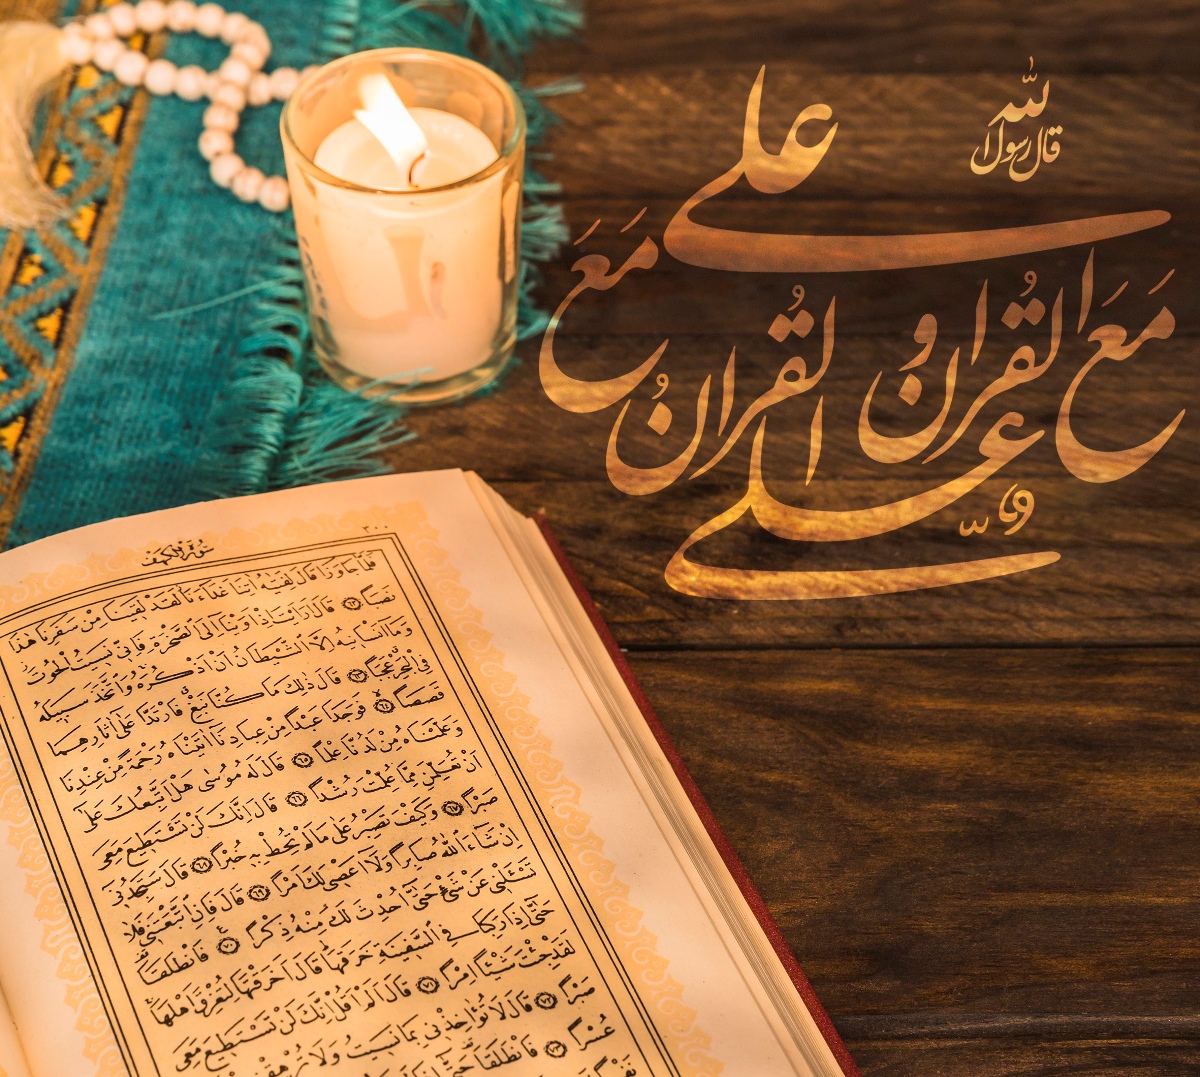 قال رسول الله
علی
مَعَ القُران و القُران مَعَ
علی
٣٠٠
سُورَةُ الْكَهْفِ
فَلَمَّا جَاوَزَا قَالَ لِفَتٰيهُ اٰتِنَا غَدَاءَنَا لَقَدْ لَقِينَا مِنْ سَفَرِنَا هٰذَا
نَصَبًا ٦٢ قَالَ اَرَاَيْتَ اِذْ اَوَيْنَا اِلَى الصَّخْرَةِ فَاِنِّي نَسِيتُ الْحُوتَ
وَمَا اَنْسَانِيهُ اِلَّا الشَّيْطَانُ اَنْ اَذْكُرَهُ وَاتَّخَذَ سَبِيلَهُ
فِي الْبَحْرِ عَجَبًا ٦٣ قَالَ ذٰلِكَ مَا كُنَّا نَبْغِ فَارْتَدَّا عَلٰى اٰثَارِهِمَا
قَصَصًا ٦٤ فَوَجَدَا عَبْدًا مِنْ عِبَادِنَا اٰتَيْنَاهُ رَحْمَةً مِنْ عِنْدِنَا
وَعَلَّمْنَاهُ مِنْ لَدُنَّا عِلْمًا ٦٥ قَالَ لَهُ مُوسٰى هَلْ اَتَّبِعُكَ عَلٰى
اَنْ تُعَلِّمَنِ مِمَّا عُلِّمْتَ رُشْدًا ٦٦ قَالَ اِنَّكَ لَنْ تَسْتَطِيعَ مَعِيَ
صَبْرًا ٦٧ وَكَيْفَ تَصْبِرُ عَلٰى مَا لَمْ تُحِطْ بِهِ خُبْرًا ٦٨ قَالَ سَتَجِدُنِي
اِنْ شَاءَ اللّٰهُ صَابِرًا وَلَا اَعْصِي لَكَ اَمْرًا ٦٩ قَالَ فَاِنِ اتَّبَعْتَنِي فَلَا
تَسْئَلْنِي عَنْ شَيْءٍ حَتّٰى اُحْدِثَ لَكَ مِنْهُ ذِكْرًا ٧٠ فَانْطَلَقَا
حَتّٰى اِذَا رَكِبَا فِي السَّفِينَةِ خَرَقَهَا قَالَ اَخَرَقْتَهَا لِتُغْرِقَ اَهْلَهَا
لَقَدْ جِئْتَ شَيْئًا اِمْرًا ٧١ قَالَ اَلَمْ اَقُلْ اِنَّكَ لَنْ تَسْتَطِيعَ مَعِيَ
صَبْرًا ٧٢ قَالَ لَا تُؤَاخِذْنِي بِمَا نَسِيتُ وَلَا تُرْهِقْنِي
عُسْرًا ٧٣ فَانْطَلَقَا حَتّٰى اِذَا